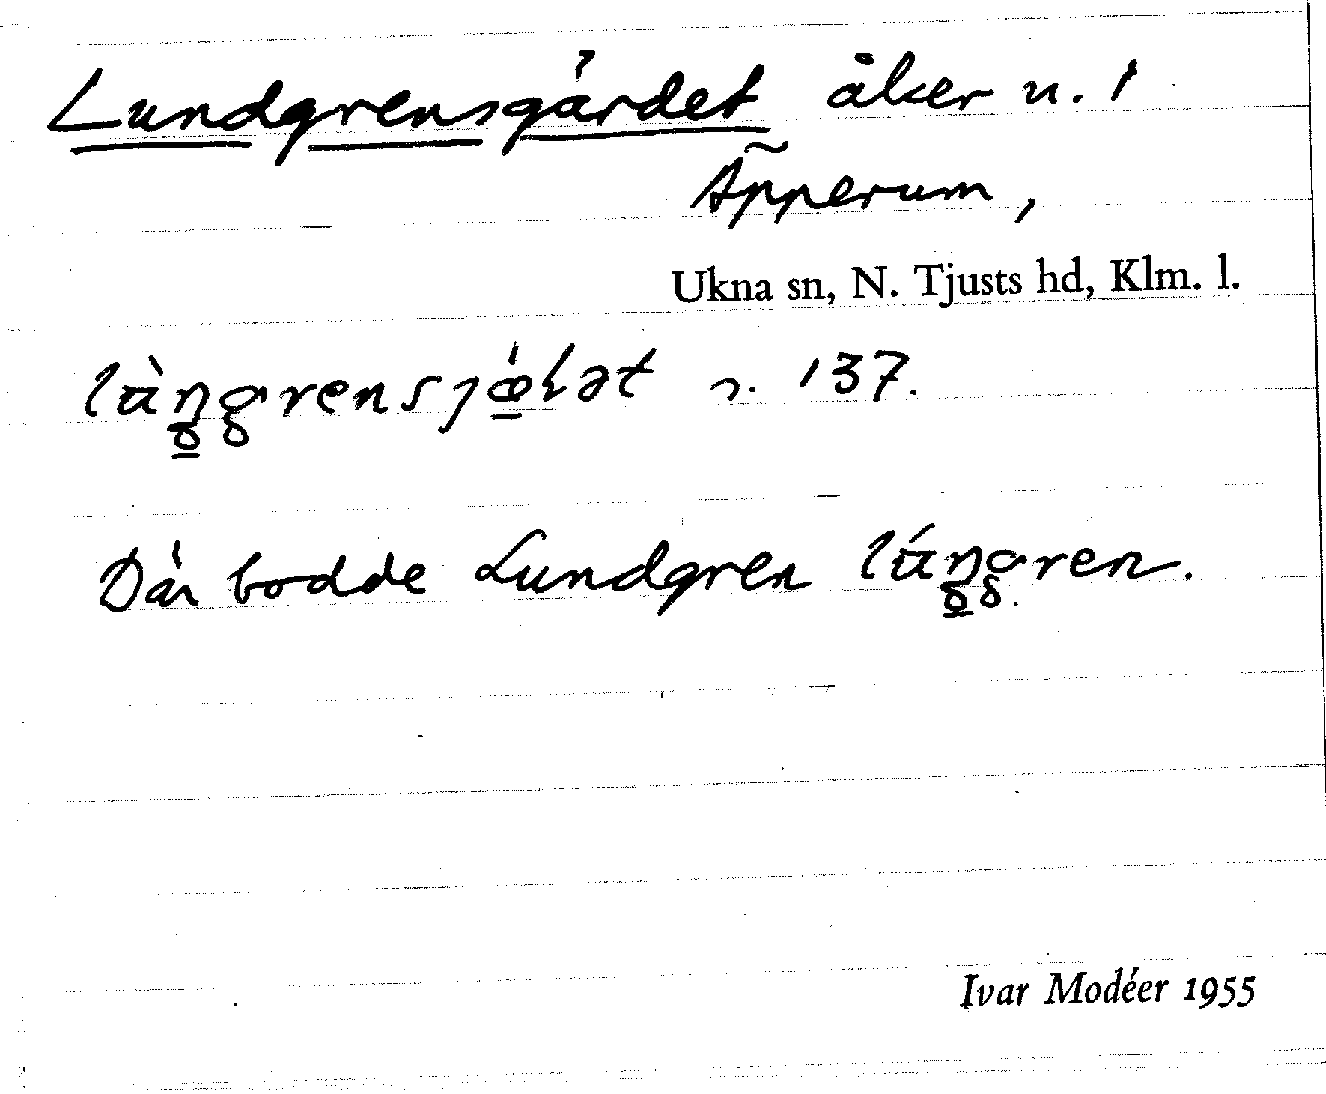 Lundgrensgärdet åker n. 1
Äpperum,
Ukna sn, N. Tjusts hd, Klm. l.
r. 137.
Där bodde Lundgren
Ivar Modéer 1955